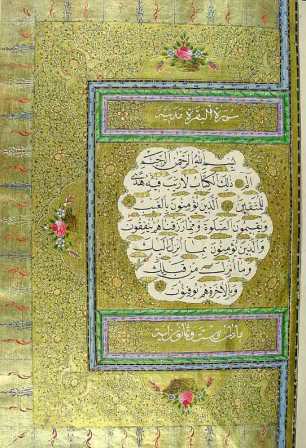 سورة البقرة مدنية
بسم الله الرحمن الرحيم
الم ذلك الكتاب لا ريب فيه هدى
للمتقين الذين يؤمنون بالغيب
ويقيمون الصلوة ومما رزقناهم ينفقون
والذين يؤمنون بما انزل اليك
وما انزل من قبلك
وبالاخرة هم يوقنون